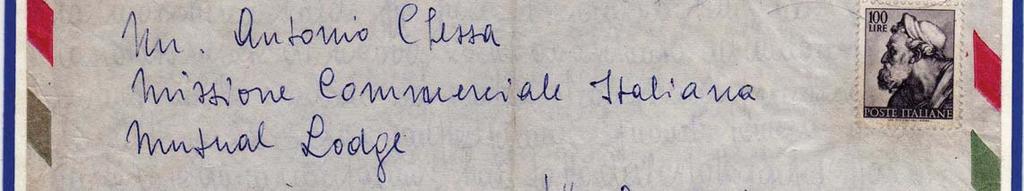 Mr. Antonio Chessa
Missione Commerciale Italiana
Mutual Lodge
100
LIRE
POSTE ITALIANE